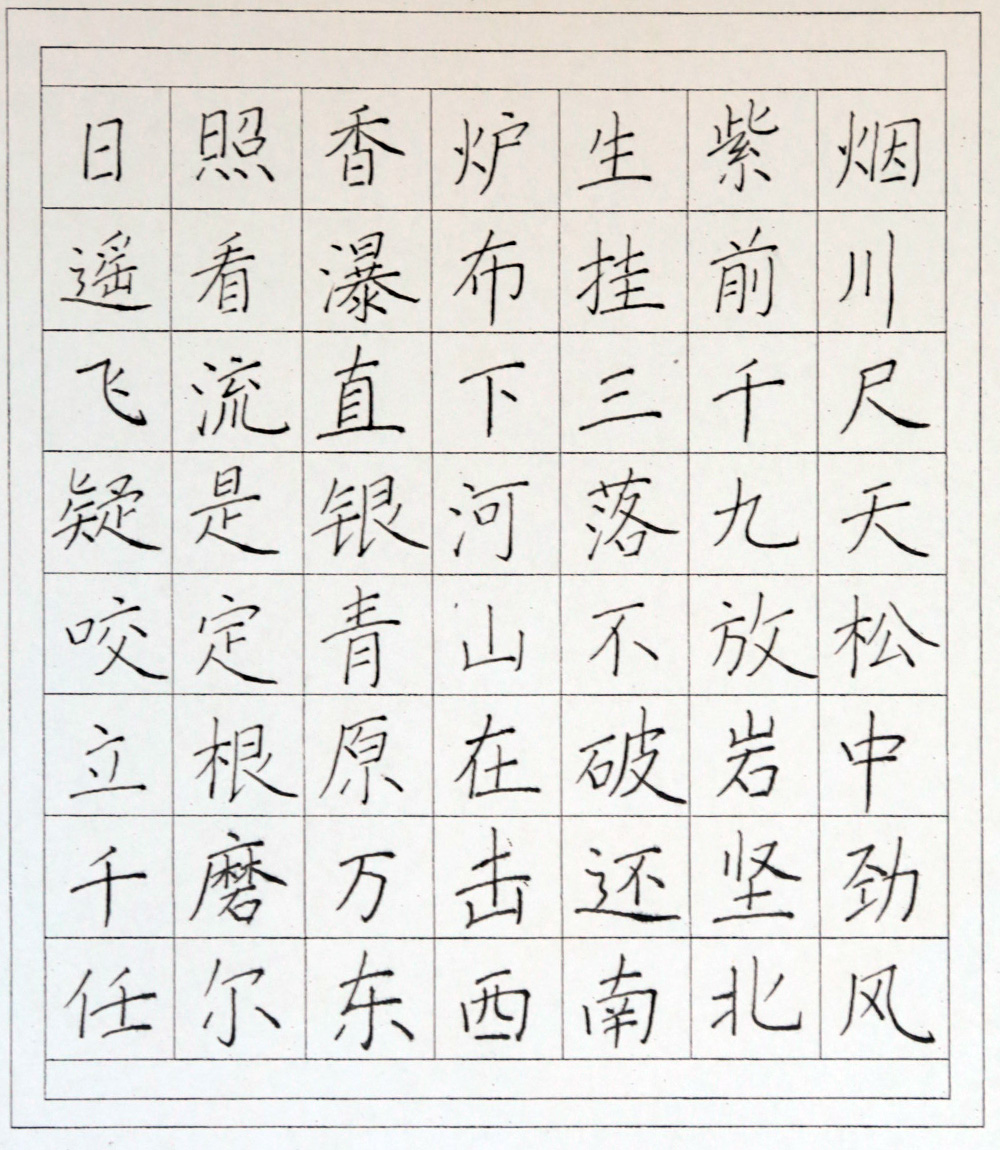 日照香炉生紫烟
遥看瀑布挂前川
飞流直下三千尺
疑是银河落九天
咬定青山不放松
立根原在破岩中
千磨万击还坚劲
任尔东西南北风